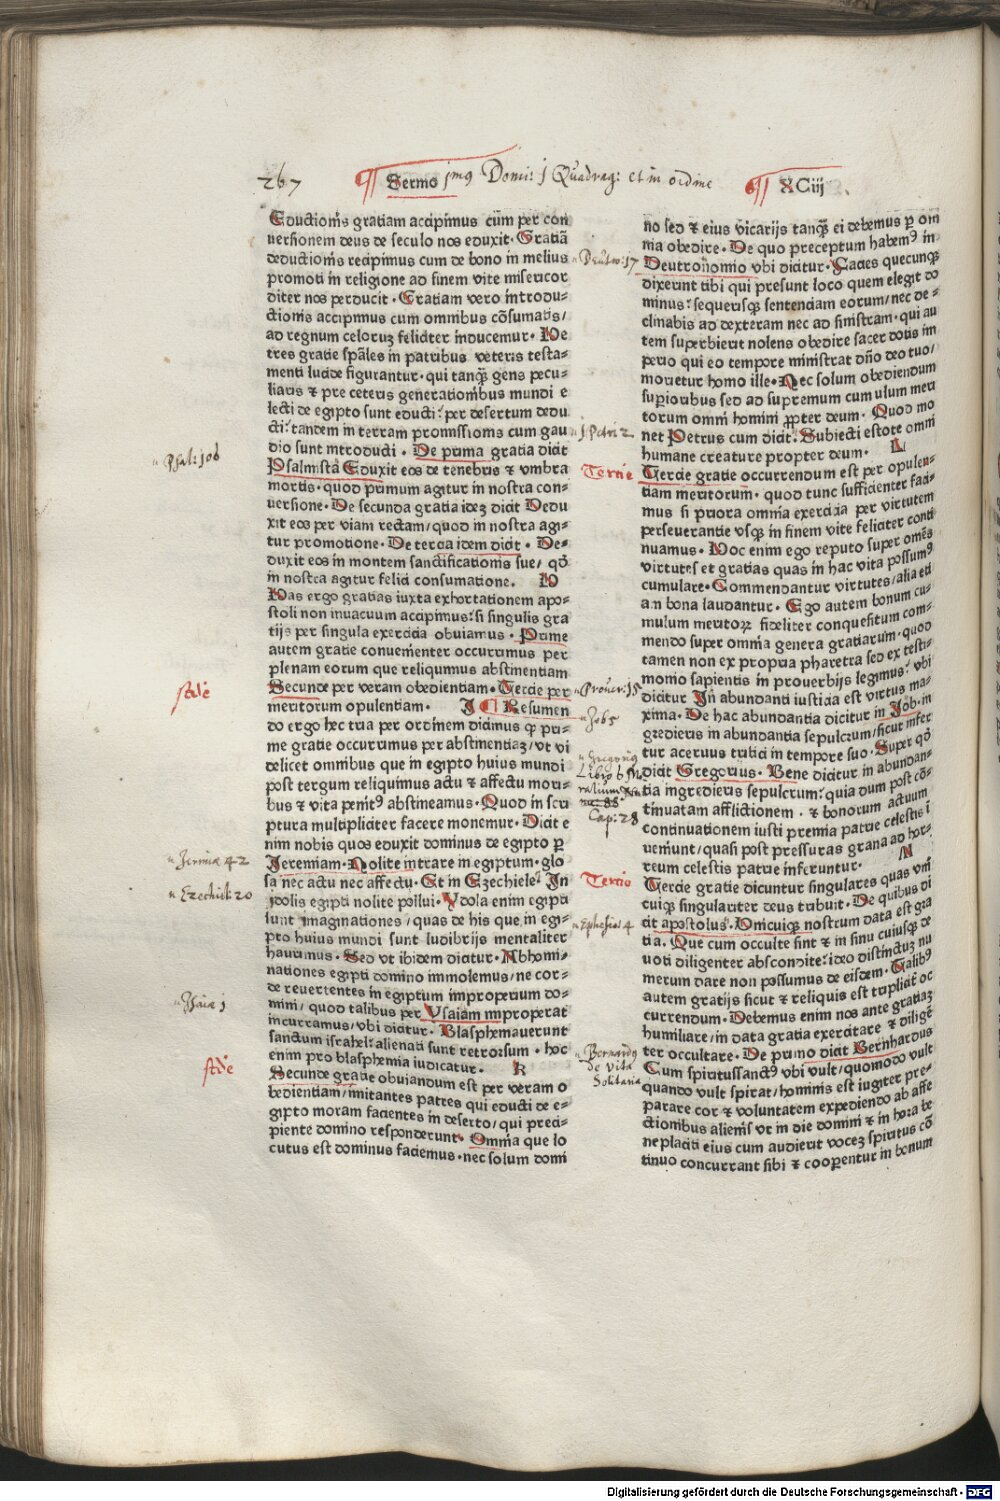 267 Sermo jmus Domi: j Quadrag: et in ordine XCiij
Eductionis gratiam accipimus cum per con
uersionem deus de seculo nos eduxit. Gratiã
deductionis recipimus cum de bono in melius
promoti in religione ad finem vite misericor
diter nos perducit. Gratiam vero introdu-
ctionis accipimus cum omnibus cõsumatis/
ad regnum celoruꝫ feliciter inducemur. He
tres gratie spãles in patribus veteris testa-
menti lucide figurantur. qui tanqꝫ gens pecu-
liaris ⁊ pre ceteris generationibus mundi e
lecti de egipto sunt educti: per desertum dedu
cti: tandem in terram promissionis cum gau
dio sunt introducti. De prima gratia dicit
Psalmista Eduxit eos de tenebris ⁊ vmbra
mortis. quod primum agitur in nostra con-
uersione. De secunda gratia ideꝫ dicit Dedu
xit eos per viam rectam/quod in nostra agi-
tur promotione. De tercia idem dicit. De-
duxit eos in montem sanctificationis sue/ qð
in nostra agitur felici consumatione. H
Has ergo gratias iuxta exhortationem apo-
stoli non inuacuum accipimus: si singulis gra
tijs per singula exercicia obuiamus. Prime
autem gratie conuenienter occurrimus per
plenam eorum que reliquimus abstinentiam
Secunde per veram obedientiam. Tercie per
meritorum opulentiam. I ¶ Resumen
do ergo hec tria per ordinem dicimus qꝫ pri-
me gratie occurrimus per abstinentiaꝫ/vt vi
delicet omnibus que in egipto huius mundi
post tergum reliquimus actu ⁊ affectu mori-
bus ⁊ vita penitꝰ abstineamus. Quod in scri
ptura multipliciter facere monemur. Dicit e
nim nobis quos eduxit dominus de egipto ꝑ
Jeremiam. Nolite intrare in egiptum. glo
sa nec actu nec affectu. Et in Ezechiele: In
idolis egipti nolite pollui. Ydola enim egipti
sunt imaginationes/quas de his que in egi-
pto huius mundi sunt ludibrijs mentaliter
haurimus. Sed vt ibidem dicitur. Abhomi-
nationes egipti domino immolemus/ne cor-
de reuertentes in egiptum improperium do-
mini/quod talibus per Ysaiam improperat
incurramus/vbi dicitur. Blasphemauerunt
sanctum israhel: alienati sunt retrorsum. hoc
enim pro blasphemia iudicatur. K
Secunde gratie obuiandum est per veram o
bedientiam/imitantes patres qui educti de e-
gipto moram facientes in deserto/qui preci-
piente domino responderunt. Omnia que lo
cutus est dominus faciemus. nec solum domi
Psal: 106
scdẽ
Jeremiæ 42
Ezechiel: 20
Isaiæ 1
scdẽ
no sed ⁊ eius vicarijs tanqꝫ ei debemus ꝑ om
nia obedire. De quo preceptum habemꝰ in
Deutronomio vbi dicitur. Facies quecunqꝫ
dixerint tibi qui presunt loco quem elegit do
minus: sequerisqꝫ sententiam eorum/nec de-
clinabis ad dexteram nec ad sinistram. qui au
tem superbierit nolens obedire sacerdotis im
perio qui eo tempore ministrat dño deo tuo/
morietur homo ille. Nec solum obediendum
supioribus sed ad supremum cumulum meri
torum omni homini ꝓpter deum. Quod mo
net Petrus cum dicit. Subiecti estote omni
humane creature propter deum. L
Tercie gratie occurrendum est per opulen-
tiam meritorum. quod tunc sufficienter faci-
mus si priora omnia exercicia per virtutem
perseuerantie vsqꝫ in finem vite feliciter conti
nuamus. Hoc enim ego reputo super omẽs
virtutes et gratias quas in hac vita possumꝰ
cumulare. Commendantur virtutes/alia eti
am bona laudantur. Ego autem bonum cu-
mulum meritoꝝ fideliter conquesitum com-
mendo super omnia genera gratiarum. quod
tamen non ex propria pharetra sed ex testi-
monio sapientis in prouerbijs legimus: vbi
dicitur In abundanti iusticia est virtus ma-
xima. De hac abundantia dicitur in Job. in
gredieris in abundantia sepulcrum/sicut infer
tur aceruus tritici in tempore suo. Super qð
dicit Gregorius. Bene dicitur in abundan-
tia ingredieris sepulcrum: quia dum post cõ-
tinuatam afflictionem. ⁊ bonorum actuum
continuationem iusti premia patrie celestis ĩ
ueniunt/quasi post pressuras grana ad hor-
reum celestis patrie inferuntur. M
Tercie gratie dicuntur singulares quas vni
cuiqꝫ singulariter deus tribuit. De quibus di
cit apostolus. Vnicuiqꝫ nostrum data est gra
tia. Que cum occulte sint ⁊ in sinu cuiusqꝫ de
uoti diligenter abscondite: ideo distinctuꝫ nu
merum dare non possumus de eisdem. Talibꝰ
autem gratijs sicut ⁊ reliquis est tripliciť oc
currendum. Debemus enim nos ante gratiaꝫ
humiliare/in data gratia exercitare ⁊ diligẽ
ter occultare. De primo dicit Bernhardus
Cum spiritussanctꝰ vbi vult/quomodo vult
quando vult spirat/hominis est iugiter pre-
parare cor ⁊ voluntatem expediendo ab affe
ctionibus alienis vt in die domini ⁊ in hora be
neplaciti eius cum audierit voceꝫ spiritus cõ
tinuo concurrant sibi ⁊ cooperentur in bonum
Deutro: 17
1 Petri 2
Tercie
Prouer: 15
Job 5
Gregoriꝰ
Cap: 28
Tercio
Ephesia: 4
Bernardꝰ
de vita
Solitaria
Digitalisierung gefördert durch die Deutsche Forschungsgemeinschaft - DFG